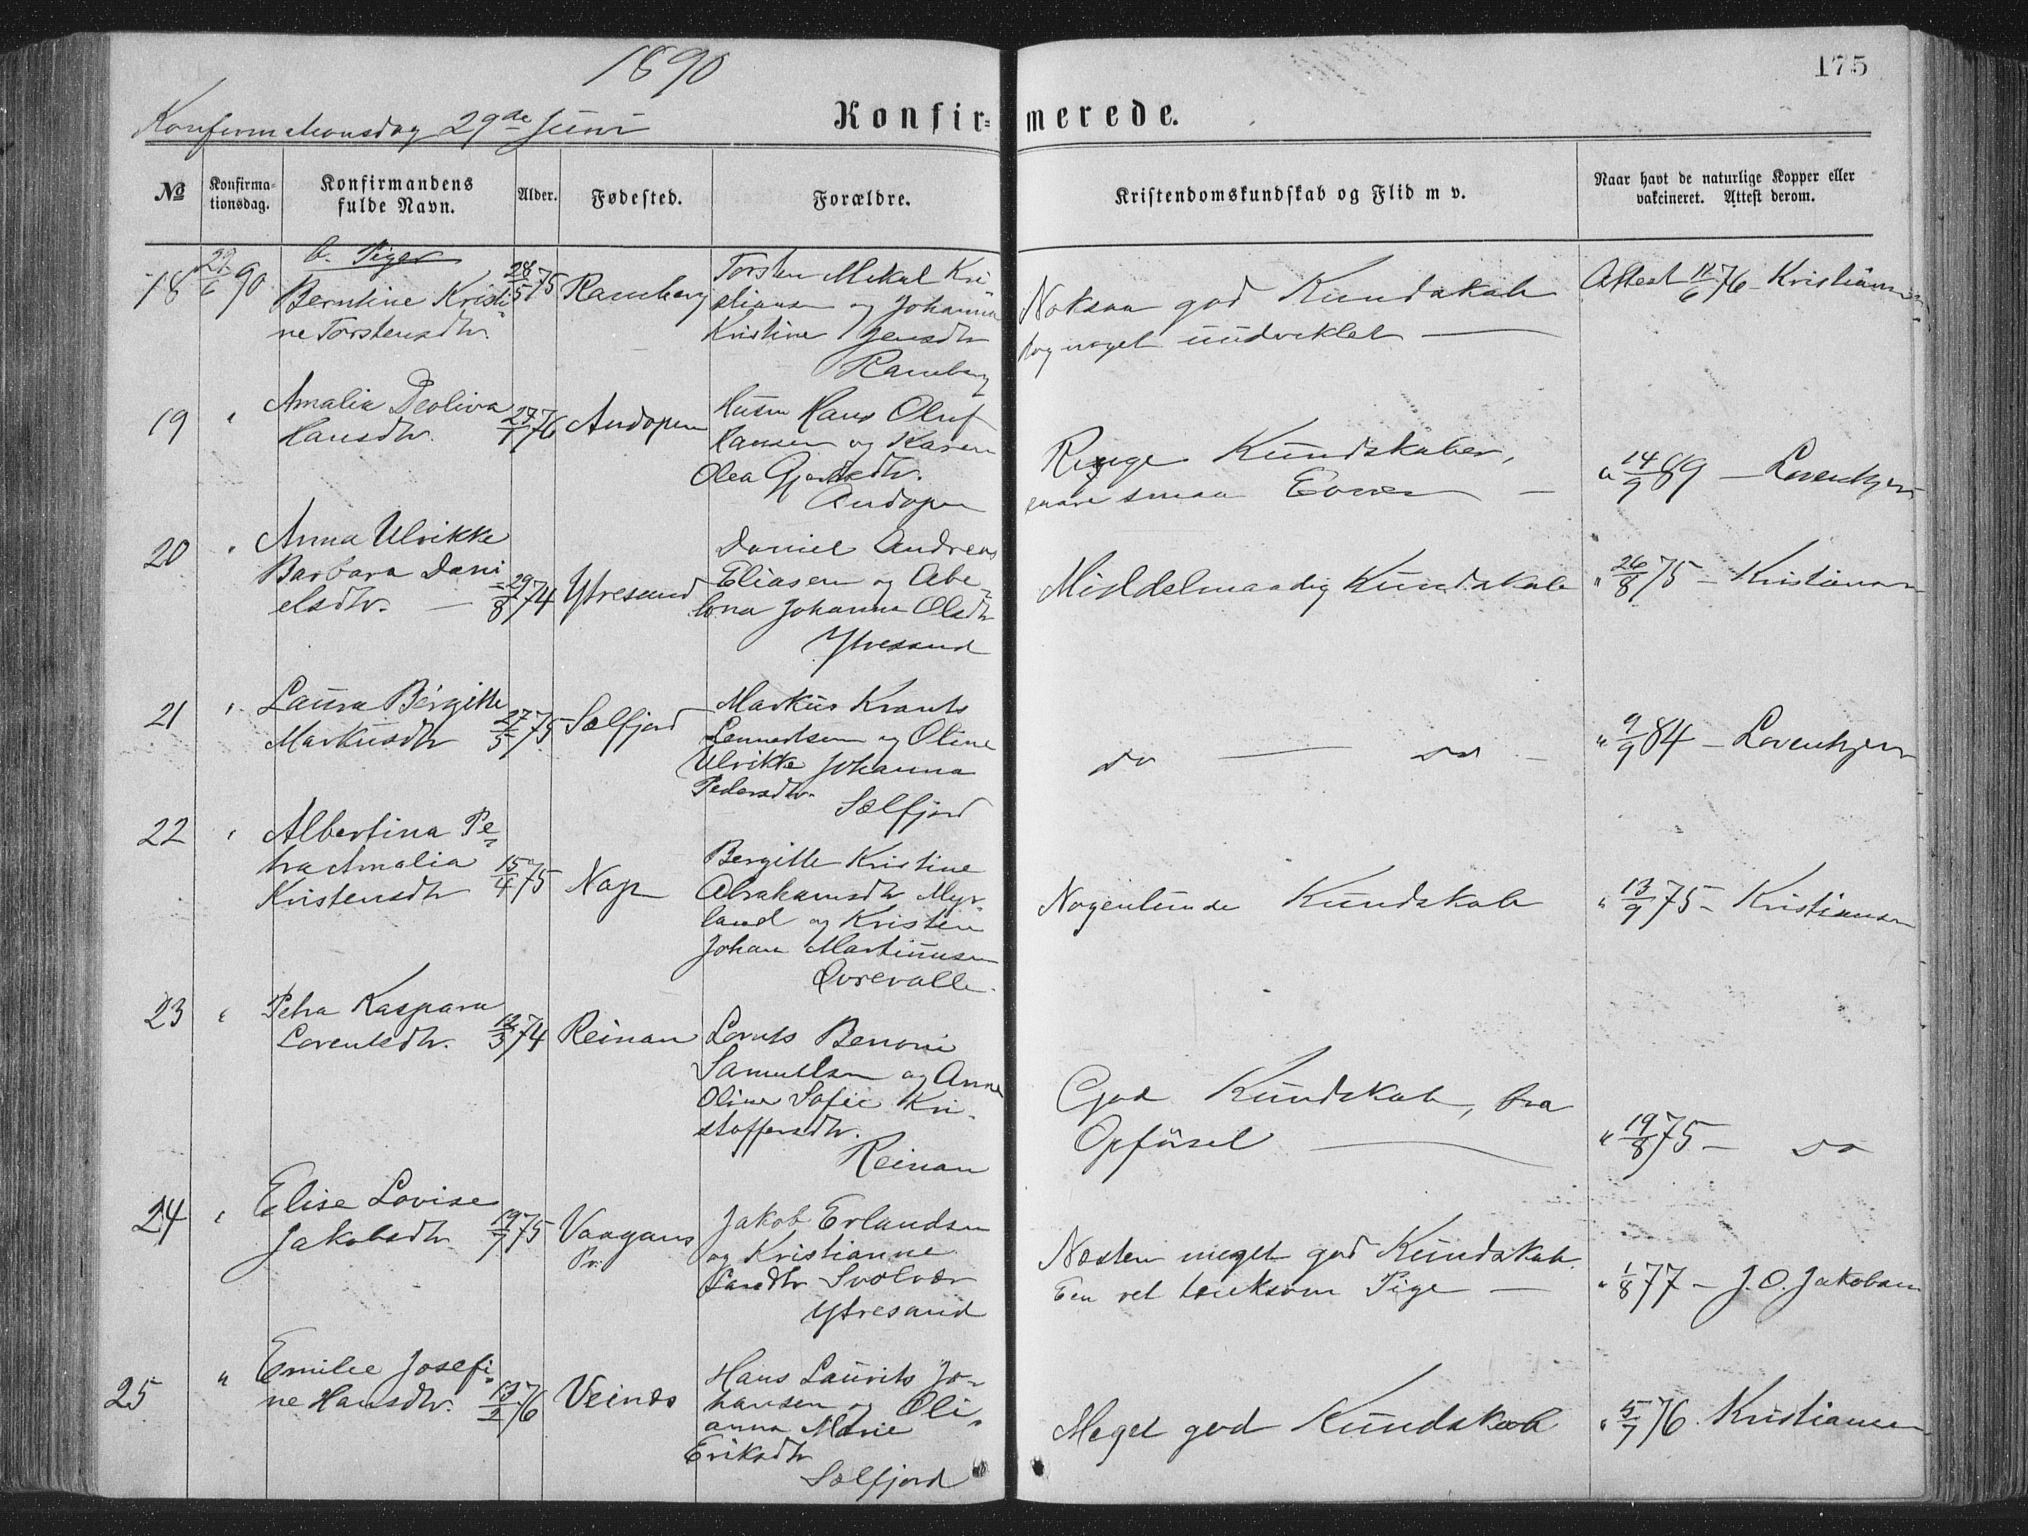 1890
175
Konfirmationsdag 29de Juni
Konfir=
merede.
No
Konfirma=
tionsdag.
Konfirmandens
fulde Navn.
Alder.
Fødested.
Forældre.
Kristendomskundskab og Flid m v.
Naar havt de naturlige Kopper eller
vakcineret. Attest derom.
b. Piger
18 29/6 90 Berntine Kristi=
ne Torstensdtr.
28/5 75 Ramberg
Torsten Mikal Kri
stiansen og Johanna
Kristine Jensdtr
Ramberg
Noksaa god Kundskab
dog noget uudviklet —
Attest 11/6 76 - Kristiansen
19 " Amalia Deoliva
Hansdtr.
27/1 76 Andopen
Husm Hans Oluf
Hansen og Karen
Olea
Andopen
Ringe Kundskaber,
smaa Evner —
" 14/9 89 - Lorentzen
20 " Anna Ulrikke
Barbara Dani=
elsdtr. —
29/8 74 Ytresand
Daniel Andreas
Eliasen og Abe=
lona Johanna Olsdtr
Ytresand
Middelmaadig Kundskab
" 26/8 75 - Kristiansen
21 " Laura Bergitte
Markusdtr
27/5 75 Sælfjord
Markus Krants
Lennertsen og Oline
Ulrikke Johanna
Pedersdtr.
Sælfjord
do — do —
" 9/9 84 - Lorentzen
22 " Albertina Pe=
tra Amalia
Kristensdtr
15/4 75 Nap
Bergitte Kristine
Abrahamsdtr Myr=
land og Kristen
Johan Martinusen
Øvrevalle.
Nogenlunde Kundskab
" 13/9 75 - Kristiansen
23 " Petra Kaspara
Lorentsdtr.
12/3 74 Reinan
Lornts Benoni
Samuelsen og Anne
Oline Sofie Kri=
stoffersdtr.
Reinan
God Kundskab, bra
Opførsel —
" 19/8 75 - do
24 " Elise Lovise
Jakobsdtr
19/7 75 Vaagans
Pr.
Jakob Erlandsen
og Kristianne
Larsdtr Svolvær
Ytresand
Næsten meget god Kundskab.
En ret tænksom Pige —
" 1/8 77 - J. O. Jakobsen
25 " Emilie Josefi=
ne Hansdtr.
13/2 76 Veinæs
Hans Laurits Jo=
hansen og Oli=
anna Marie
Eriksdtr
Sælfjord
Meget god Kundskab
" 5/7 76. Kristiansen